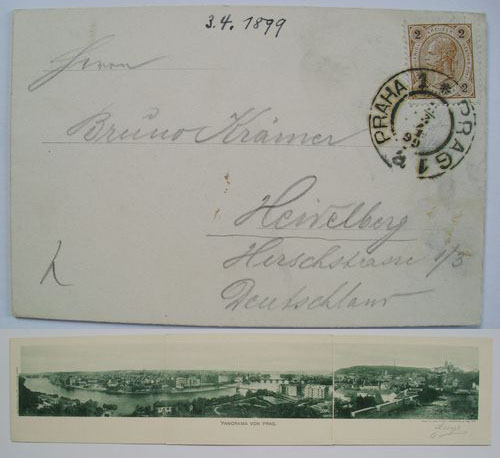 3.4. 1899
2 2
PRAHA 1 * PRAG 1
99
Herrn
Bruno Krämer
Heidelberg
Herschstrasse 1/3
Deutschland
PANORAMA VON PRAG.